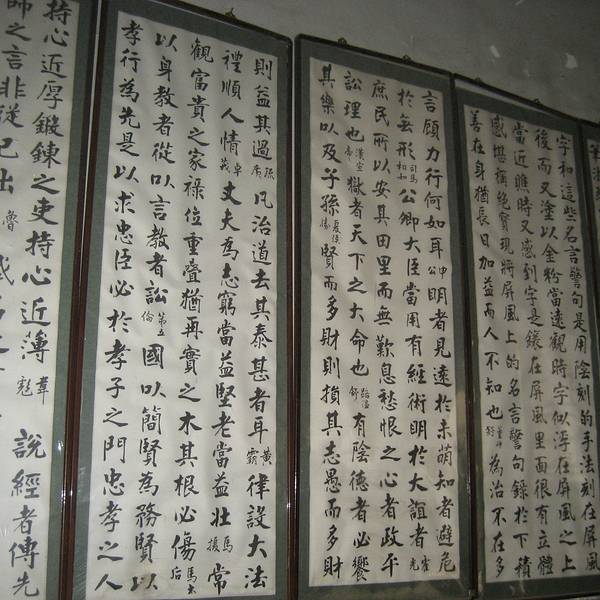 字和這些名言警句是用陰刻的手法刻在屏風
後而又塗以金粉當遠觀時字似浮在屏風之上
當近瞧時又感到字是鑲在屏風里面很有立體
感堪稱絕寶現將屏風上的名言警句錄於下積
善在身猶長日加益而人不知也董仲舒為治不在多
言顧力行何如耳申明者見遠於未萌知者避危
於無形司馬相如公卿大臣當用有經術明於大誼者霍光
庶民所以安其田里而無歎息愁恨之心者政平
訟理也漢宣帝獄者天下之大命也路溫舒有陰德者必饗
其樂以及子孫夏侯勝賢而多財則損其志愚而多財
則益其過疏廣凡治道去其泰甚者耳黃霸律設大法
禮順人情卓茂丈夫為志窮當益堅老當益壯馬援常
觀富貴之家祿位重疊猶再實之木其根必傷馬后
以身教者從以言教者訟第五倫國以簡賢為務賢以
孝行為先是以求忠臣必於孝子之門忠孝之人
持心近厚鍛鍊之吏持心近薄韋彪說經者傳先
師之言非從己出魯